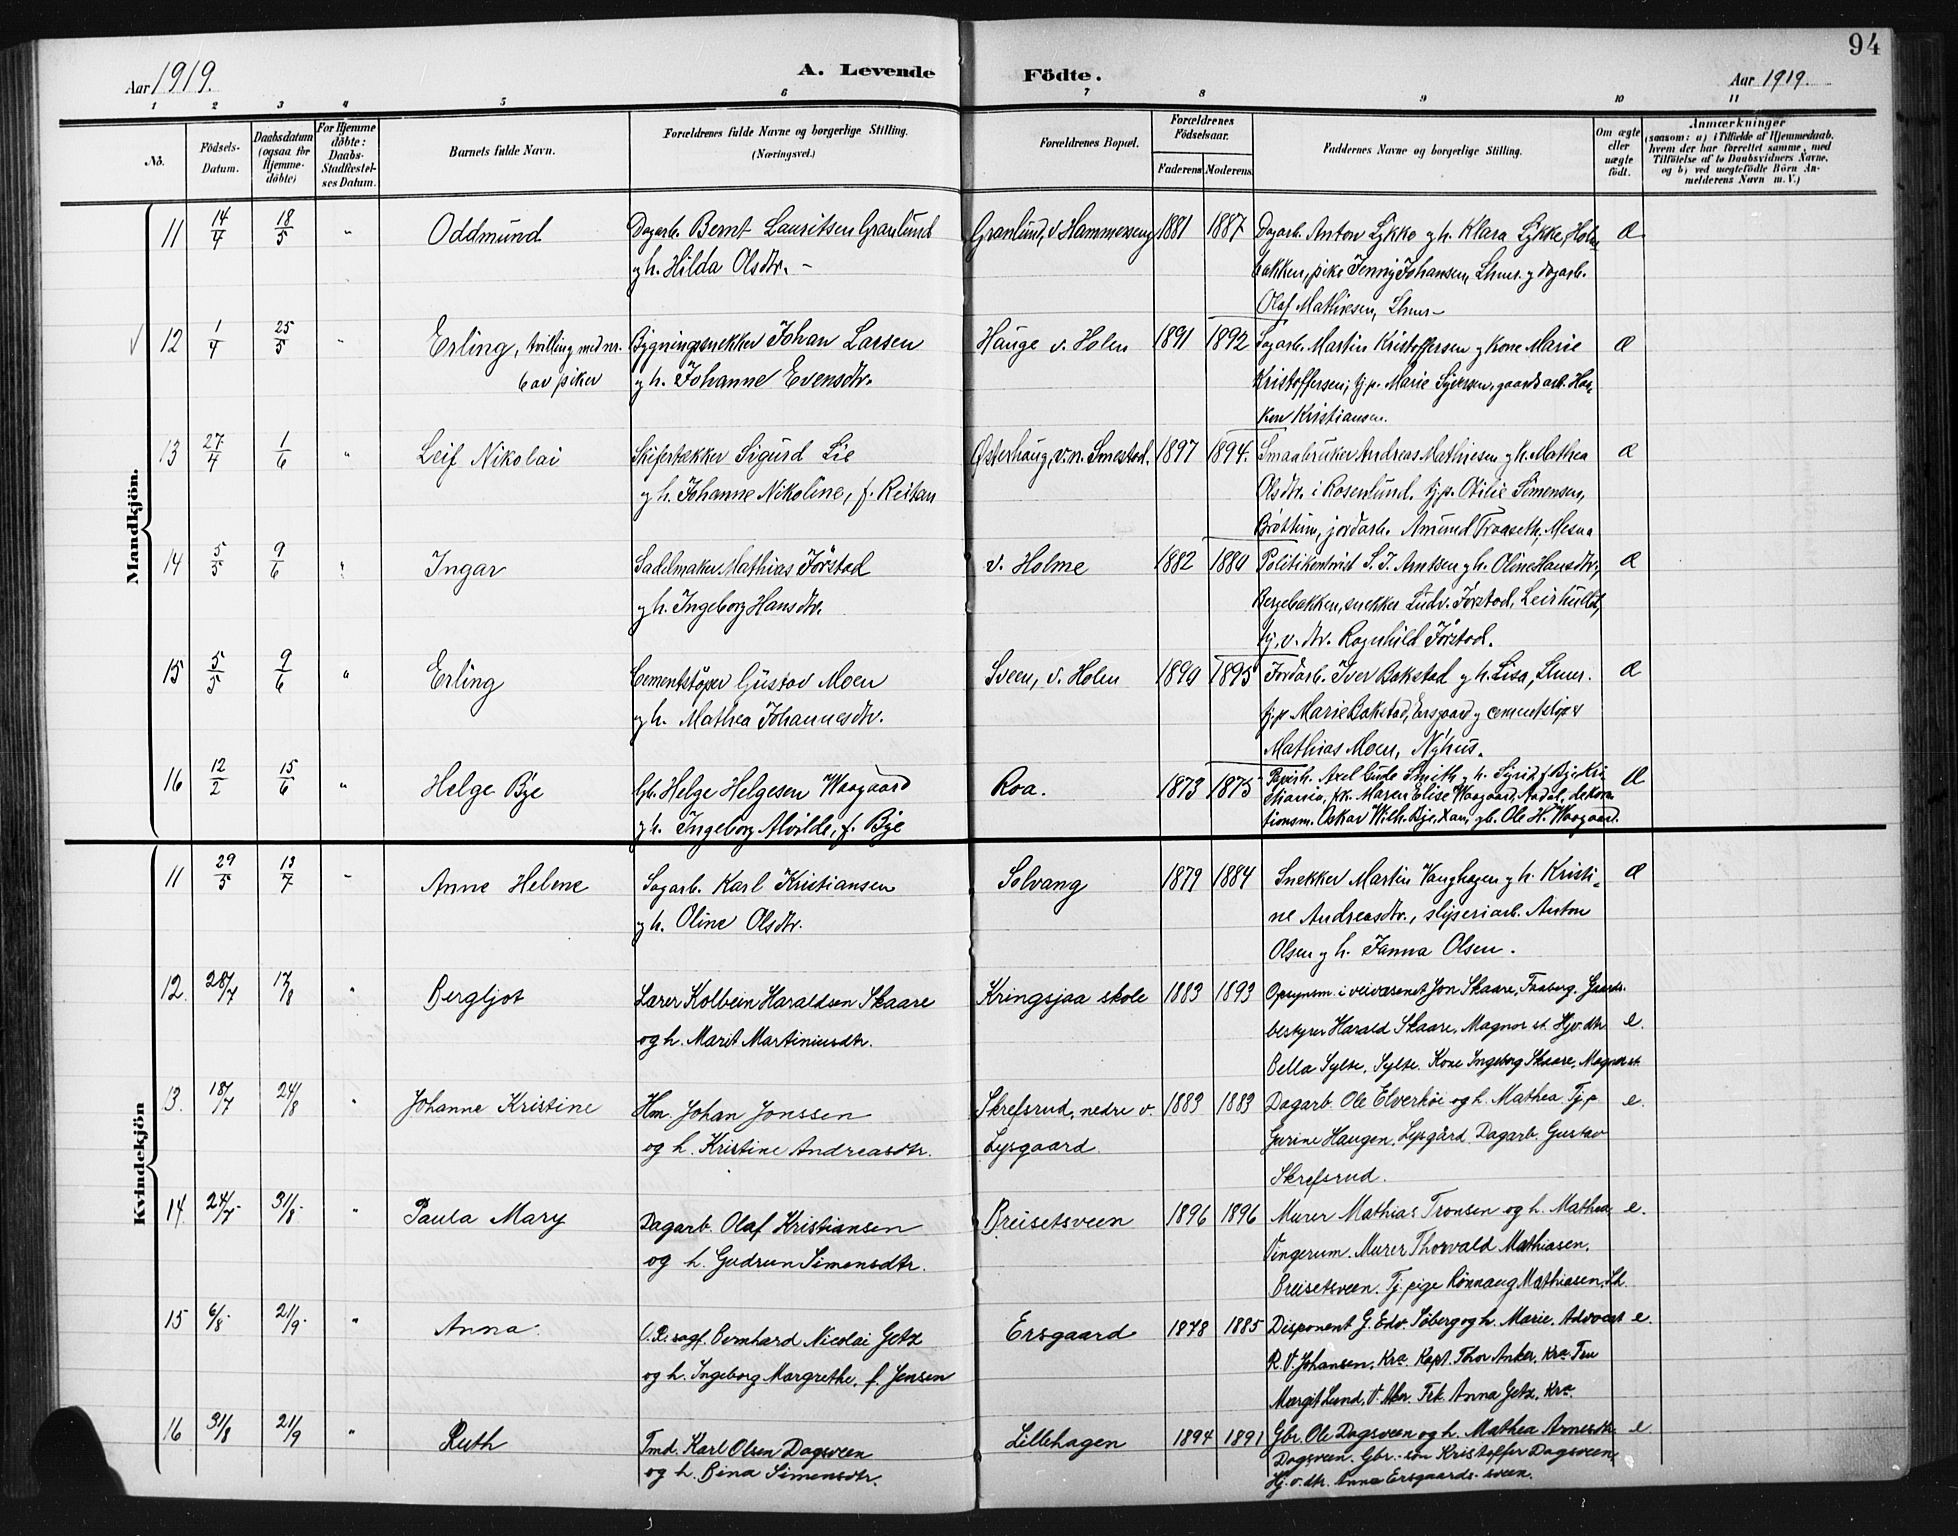 94
Aar 1919.
A. Levende Födte.
Aar 1919.
1 2 3 4 5 6 7 8 9 10 11
No.
Födsels-Datum.
Daabsdatum (ogsaa for Hjemmedöbte)
For Hjemmedöbte: Daabs-Stadfæstelses Datum.
Barnets fulde Navn.
Forældrenes fulde Navne og borgerlige Stilling. (Næringsvei.)
Forældrenes Bopæl.
Forældrenes Födselsaar.
Faderens Moderens
Faddernes Navne og borgerlige Stilling.
Om ægte eller uægte födt.
Anmærkninger
(saasom: a) i Tilfælde af Hjemmedaab, hvem der har forrettet samme, med Tilföielse af to Daabsvidners Navne, og b) ved uægtefödte Börn Anmelderens Navn m. V.)
Mandkjön.
11 14/4 18/5 " Oddmund
Dagarb. Bernt Lauritsen Granlund
og h. Hilda Olsdtr. –
Granlund, v. Hammereng 1881 1887
Dagarb. Anton Lykke og h. Klara Lykke, Holm
bakken, pike Jenny Johansen, Lhmr. og dagarb.
Olaf Mathiesen, Lhmr– Æ
12 1/4 25/5 " Erling, tvilling med nr.
6 av piker
Bygningssnekker Johan Larsen
og h. Johanne Evensdtr.
Hauge v. Holen 1891 1892
Sagarb. Martin Kristoffersen og kone Marie
Kristoffersen, tj.p. Marie Syversen, gaardsarb. Haa-
kon Kristiansen. Æ
13 27/4 1/6 " Leif Nikolai
Skifertækker Sigurd Lie
og h. Johanne Nikoline, f. Reistan
Østerhaug, v. n. Smestad. 1897 1894.
Smaabruker Andreas Mathiesen og h. Mathea
Olsdtr. i Rosenlund. tj.p. Otilie Simensen,
Brøttum, jordarb. Amund Traaseth, Mesna Æ
14 5/5 9/6 " Ingar
Sadelmaker Mathias Jørstad
og h. Ingeborg Hansdtr.
v. Holme 1882 1889
Politikonst. S. J. Arntsen og h. Oline Hansdtr.,
Bergebakken, snekker Ludv. Jørstad, Leirhullet,
tj. v. dtr. Ragnhild Jørstad. Æ
15 5/5 9/6 " Erling
Cementstøper Gustav Moen
og h. Mathea Johannesdtr.
Sveen, v. Holen 1890 1895
Jordarb. Iver Bakstad og h. Lisa, Lhmr.
tj.p Marie Bakstad, Ersgaard og cementstøper
Mathias Moen, Nyhus. Æ
16 12/2 15/6 " Helge Bye
Gb. Helge Helgesen Waagaard
og h. Ingeborg Alvilde, f. Bye
Roa. 1873 1875
Axel Gude Smith og h. Sigrid f. Bye, Kri-
stiania, frk. Maren Elise Waagaard, Aadal, dekora-
tionsm. Oskar Wilh. Bye, Xan, gb. Ole H. Waagaard. Æ
Kvindekjön
11 29/5 13/7 " Anne Helene
Sagarb. Karl Kristiansen
og h. Oline Olsdtr.
Solvang 1879 1884
Snekker Martin Vanghagen og h. Kristi-
ne Andreasdtr., sliperiarb. Anton
Olsen og h. Janna Olsen. Æ
12. 28/7 17/8 " Bergljot
Lærer Kolbein Haraldsen Skaare
og h. Marit Martiniusdtr.
Kringsjaa skole 1883 1893
Opsynsm. i veivæsenet Jon Skaare, Faaberg. Gaards-
bestyrer Harald Skaare, Magnor st. Hjv. dtr
Bella Sylte, Sylte. Kone Ingeborg Skaare, Magnor st. e.
13. 18/7 24/8 " Johanne Kristine
Hm. Johan Jonssen
og h. Kristine Andreasdtr.
Skrefsrud, nedre v.
Lysgaard 1883 1883
Dagarb. Ole Elverhöi og h. Mathea. Tj.p
Gurine Haugen, Lysgård. Dagarb. Gustav
Skrefsrud. e.
14. 24/7 31/8 " Paula Mary
Dagarb. Olaf Kristiansen
og h. Gudrun Simensdtr.
Breisetsveen 1896 1896
Murer Mathias Tronsen og h. Mathea
Vingerum. Murer Thorvald Mathiasen,
Breisetsveen. Tj. pige Rönnaug Mathiasen, Lh. e.
15 6/8 21/9 " Anna.
O.R.sagf. Bernhard Nicolai Getz
og h. Ingeborg Margrethe, f. Jensen
Ersgaard 1878 1885
Disponent G. Edv. Söberg og h. Marie. Advocat
R. V. Johansen, Kra. Kapt. Thor Anker, Kra. Fru
Margit Lund, V. Aker. Frk. Anna Getz, Kra. e.
16 31/8 21/9 " Ruth
Tmd. Karl Olsen Dagsveen
og h. Bina Simensdtr.
Lillehagen 1894 1891
Gbr. Ole Dagsveen og h. Mathea Arnesdtr.
Dagsveen. Gbr.-sön Kristoffer Dagsveen,
Hj. v. dtr. Anna Ersgaards-sveen. e